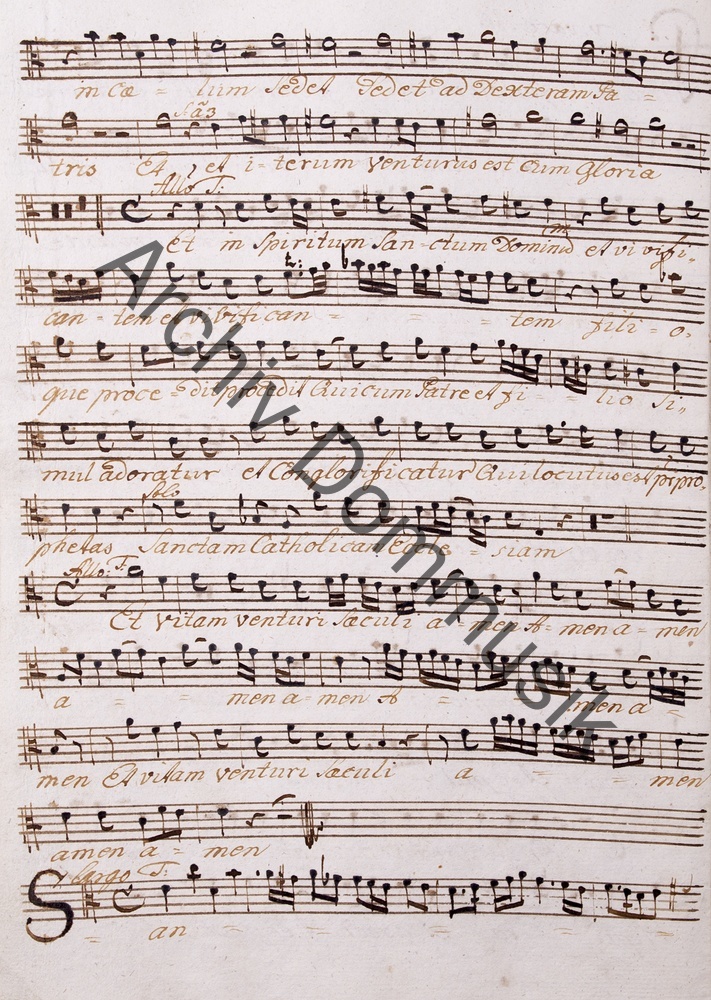 in cœ = lum sedet sedet ad Dexteram Pa =
tris Et et i - terum venturus est cum Gloria
All⁰ T:
Et in spiritum San - ctum Dominũ et vivifi =
can - tem et vivifican = = = tem filio =
que proce = dit procedit Qui cum Patre et fi = lio si =
mul adoratur et Conglorificatur Qui locutus est p pro =
Solo
phetas Sanctam Catholicam Eccle = siam
All⁰: T:
Et vitam venturi sæculi a = men A = men a = men
a = = men a - men A = = men a =
men Et vitam venturi sæculi a = = men
amen a = men
Largo T:
S = an = = = =
Archiv Dommusik